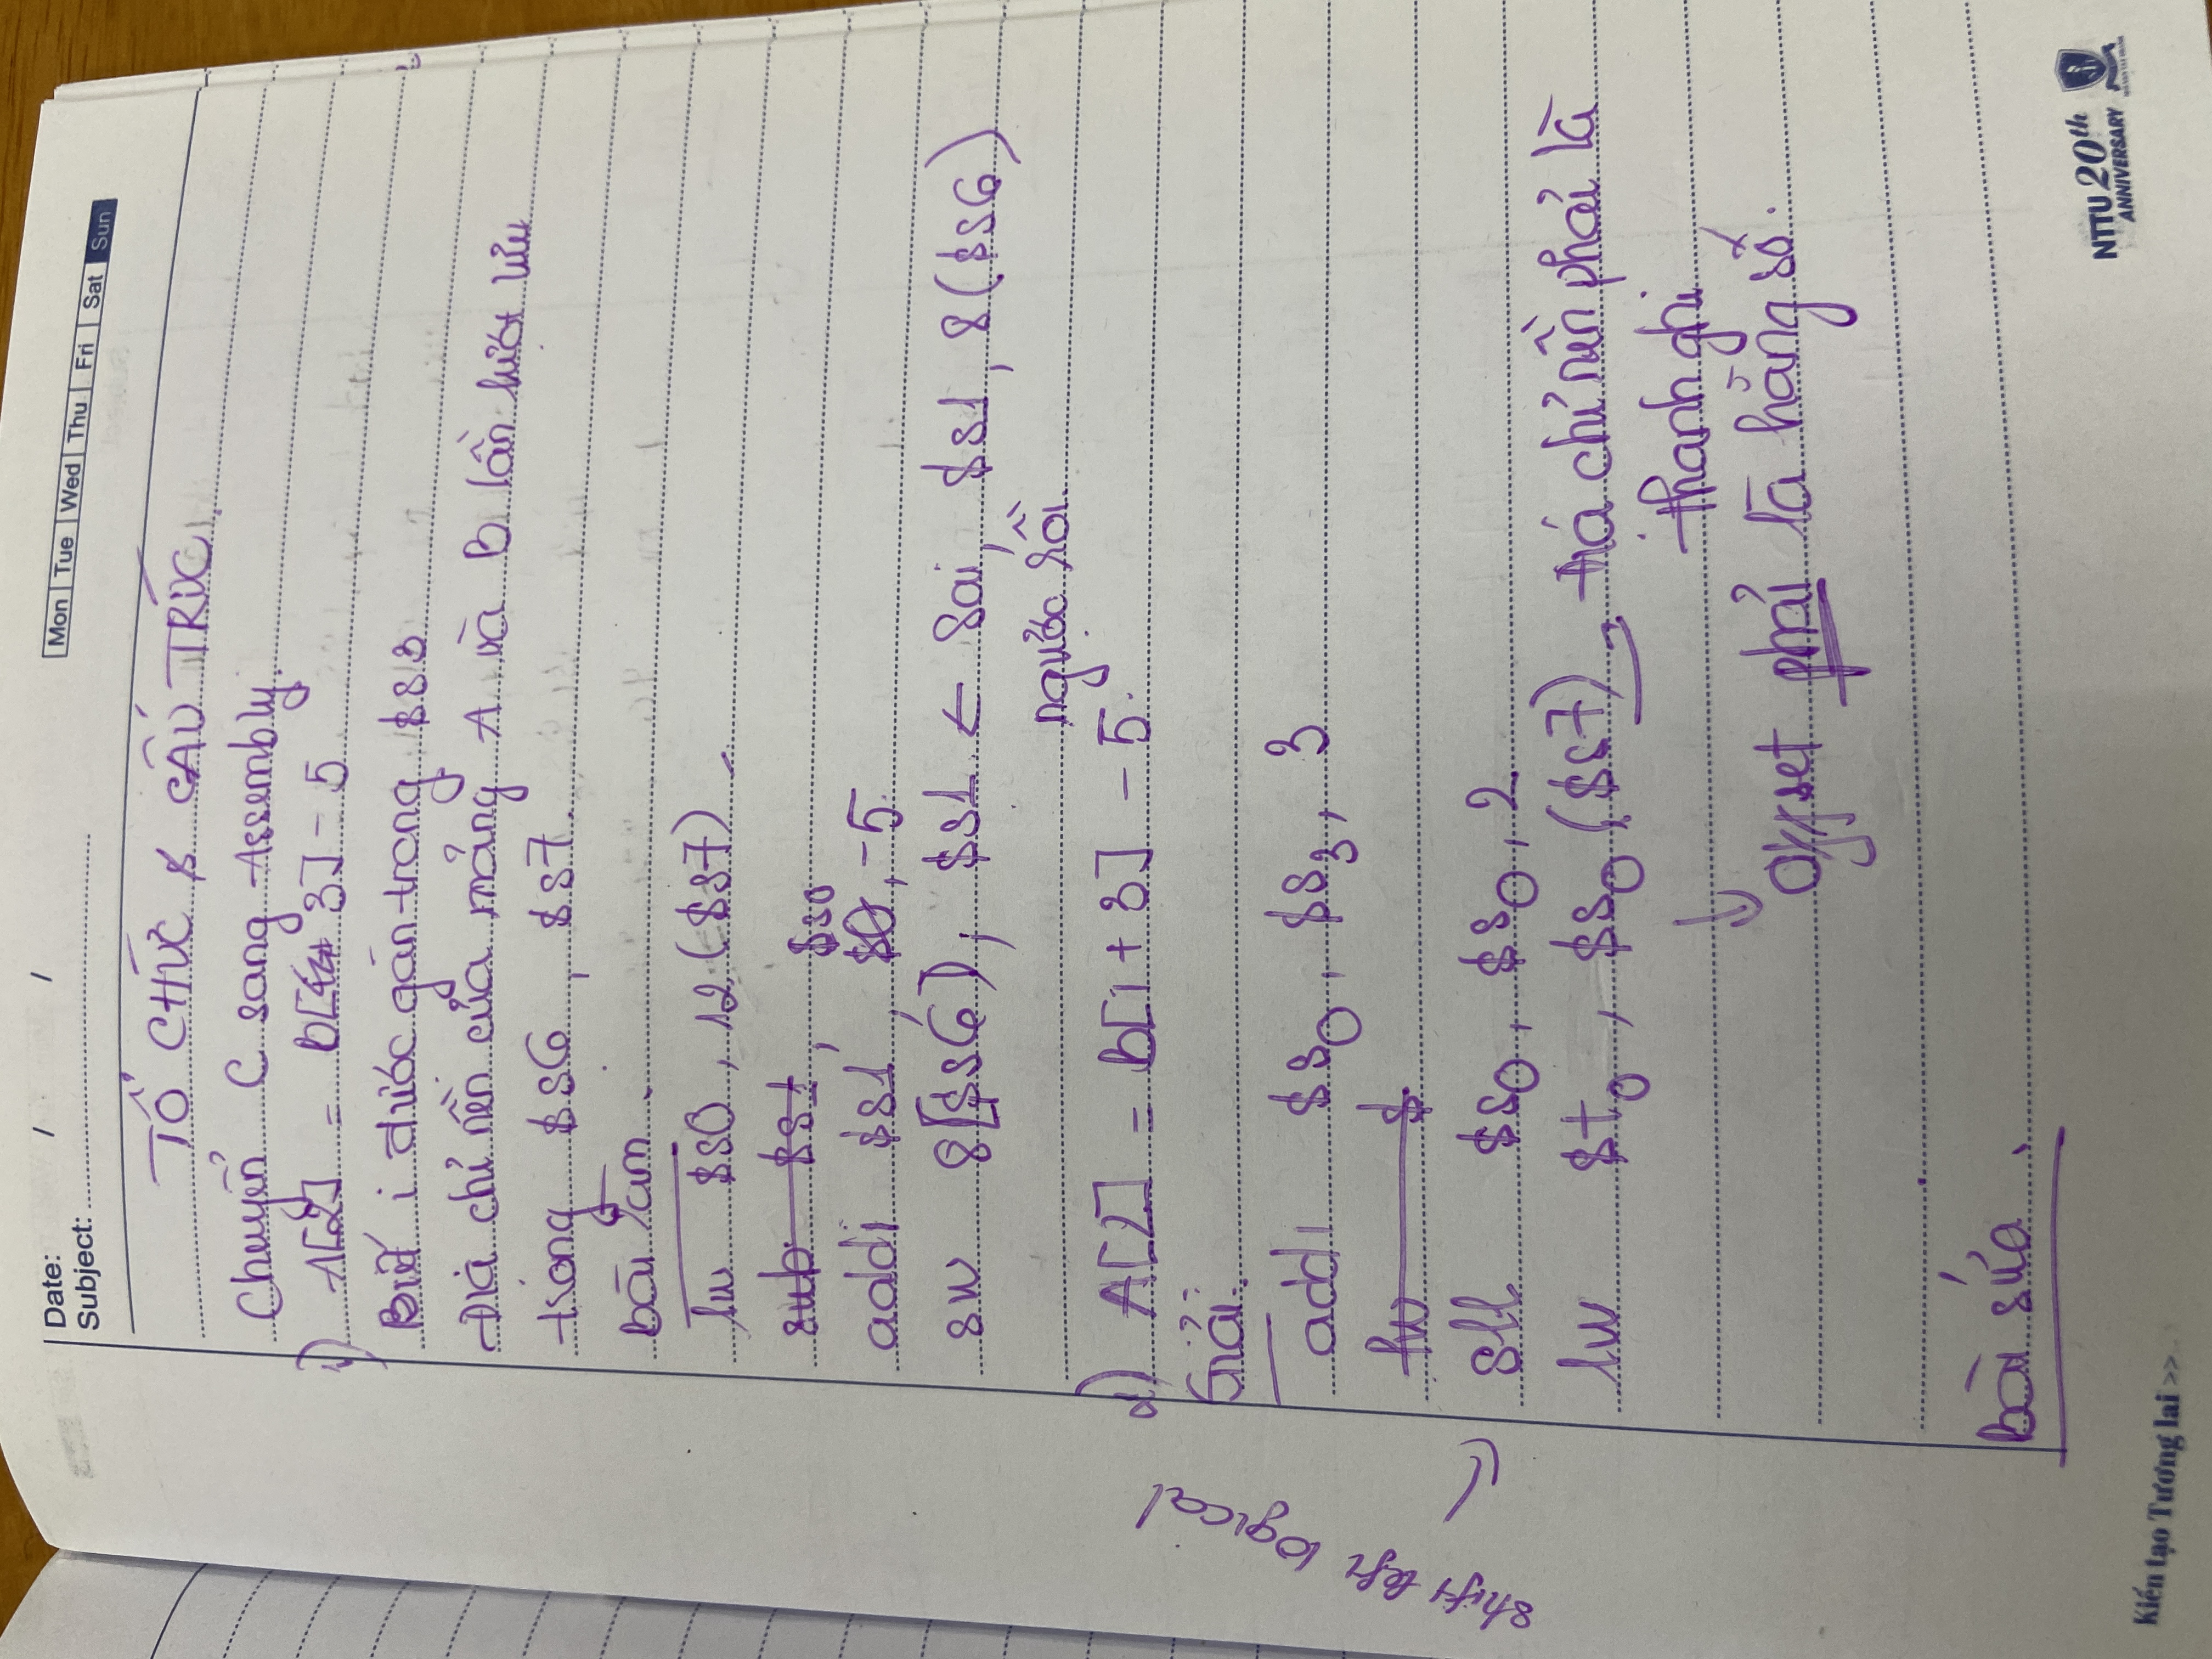 Date: / /
Subject:
Mon Tue Wed Thu Fri Sat Sun
TỔ CHỨC & CẤU TRÚC.
Chuyển C sang Assembly.
1) A[2] = B[3] - 5
Biết i được gán trong $s3
Địa chỉ nền của mảng A và B lần lượt lưu
trong $s6, $s7.
Bài làm.
lw $s0, 12($s7)
sub $s1,
$s0
addi $s1, $0, -5
sw 8($s6), $s1 ← Sai, $s1, 8($s6)
ngược rồi.
2) A[2] = B[i + 3] - 5.
Giải:
addi $s0, $s3, 3
lw $
shift left logical
sll $s0, $s0, 2
lw $t0, $s0($s7) → địa chỉ nền phải là
thanh ghi
↓ Offset phải là hằng số.
Bài sửa.
NTTU 20th
ANNIVERSARY
Kiến tạo Tương lai >>